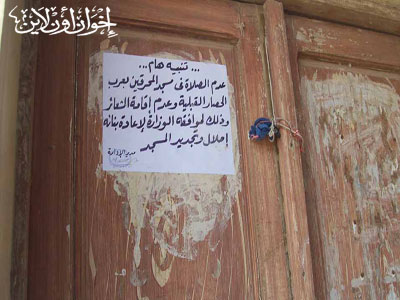 إخوان أون لاين
... تنبيه هام ...
عدم الصلاة فى مسجد المحرقين بعرب
الحصار القبلية وعدم إقامة الشعائر
وذلك لموافقة الوزارة لإعادة بنائه
إحلال وتجديد المسجد
مدير الإدارة